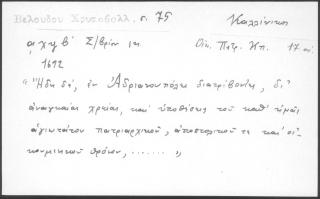 Βελουδου Χρυσοβουλλ. σ. 75 Καλλίνικος
αχϟβ´ Σ/βρίου ιη Οἰκ. Πατρ. Κπ. 17 αἰ.
1692
"Ἤδη δέ, ἐν Ἀδριανουπόλει διατρίβοντες, δι'
ἀναγκαίας χρείας, καὶ ὑποθέσεις τοῦ καθ' ἡμᾶς
ἁγιωτάτου πατριαρχικοῦ, ἀποστολικοῦ τε καὶ οἰ-
κουμενικοῦ θρόνου, ....... "